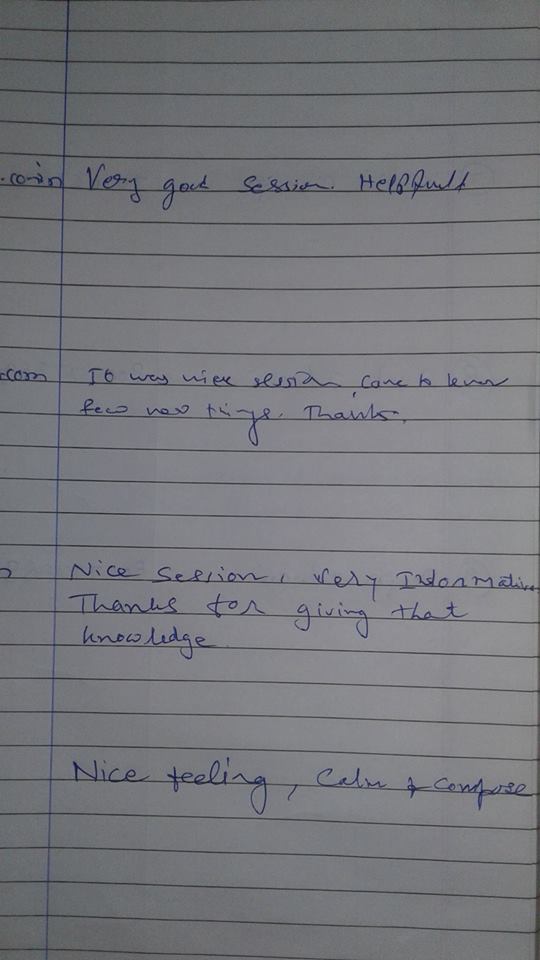 .co.in Very good session. Helpfull
.com It was nice session, came to know
few new things. Thanks.
Nice Session, very Informative
Thanks for giving that
knowledge.
Nice feeling, Calm & Compose